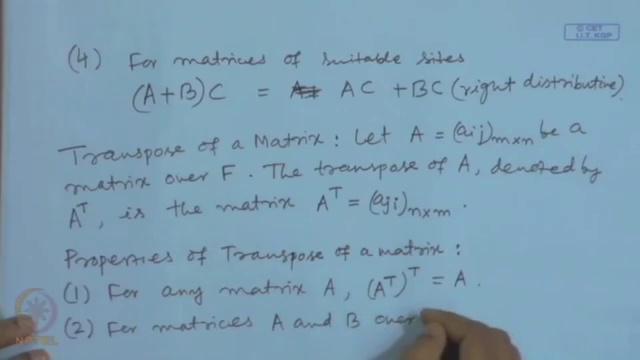 © CET
I.I.T. KGP
(4) For matrices of suitable sites
(A+B)C = AC + BC (right distributive)
Transpose of a Matrix: Let A = (aij)m×n be a
matrix over F. The transpose of A, denoted by
A^T, is the matrix A^T = (aji)n×m.
Properties of Transpose of a matrix:
(1) For any matrix A, (A^T)^T = A.
(2) For matrices A and B over
NPTEL